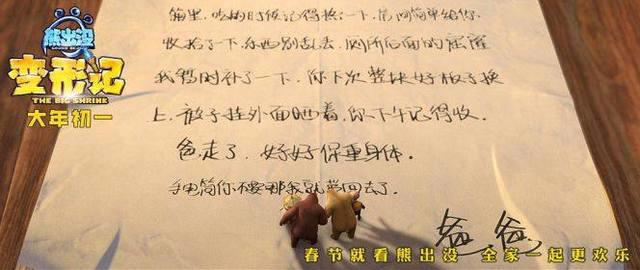 熊出没
变形记
THE BIG SHRINK
大年初一
箱里，吃的时候记得热一下，房间简单给你
收拾了一下，东西别乱丢，厕所后面的窟窿
我暂时补了一下，你下次整块好板子换
上，被子挂外面晒着，你下午记得收。
爸走了，好好保重身体。
手电筒你不要那我就带回去了。
爸爸
春节就看熊出没 全家一起更欢乐